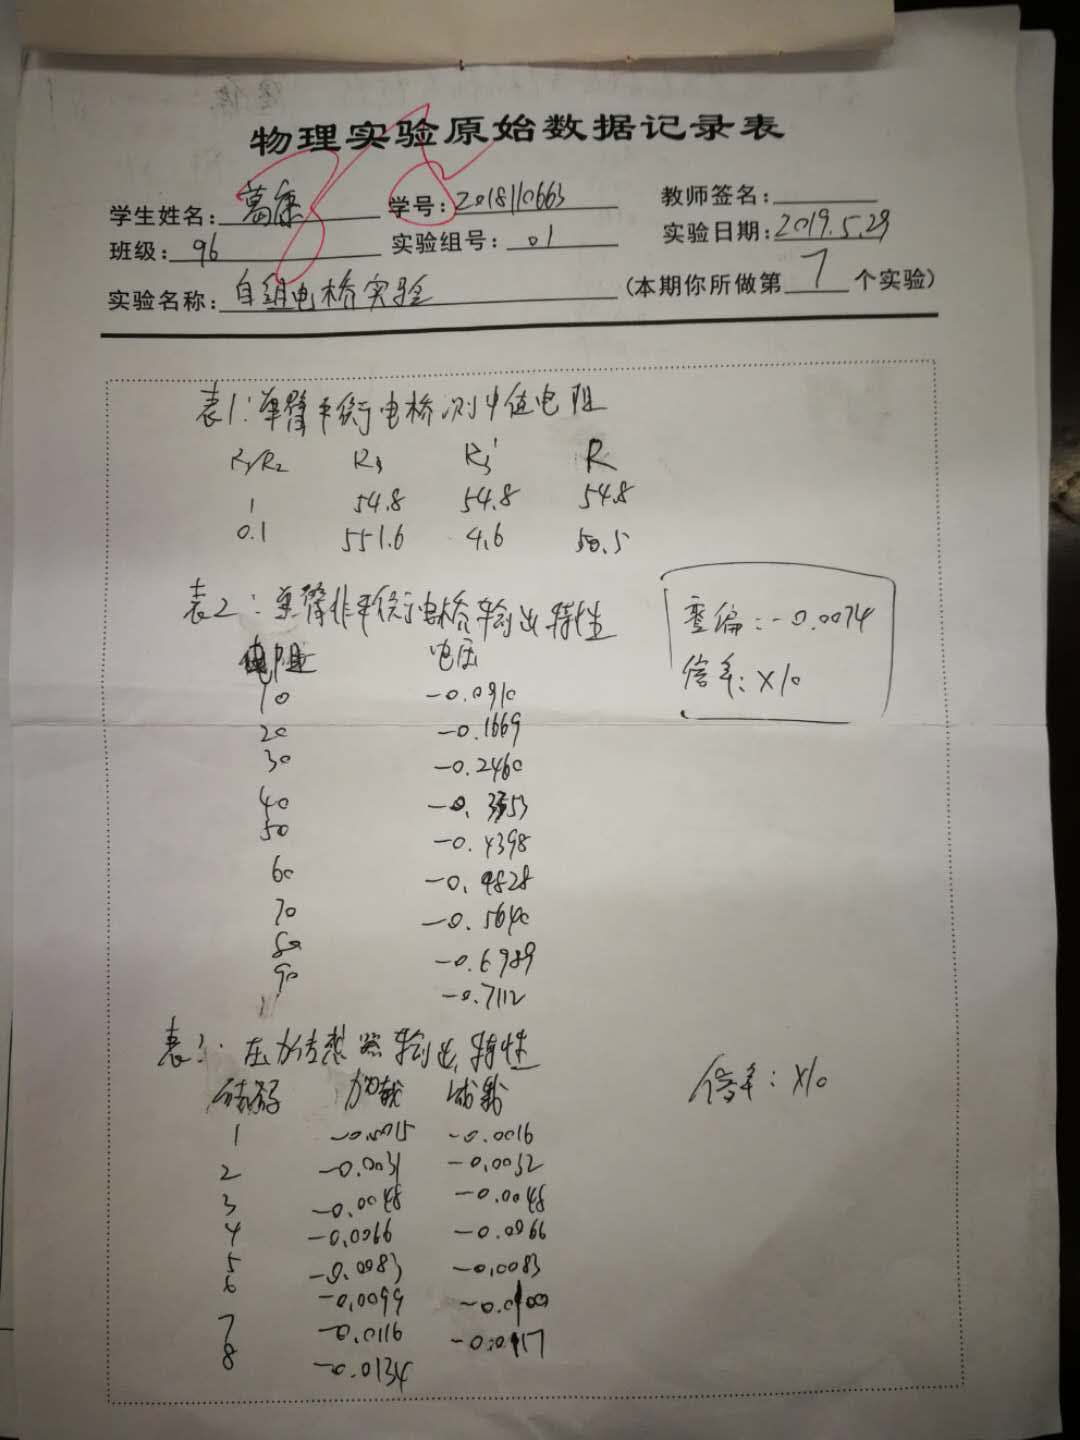 物理实验原始数据记录表
学生姓名: 葛康 学号: 2018110663 教师签名:
班级: 96 实验组号: 01 实验日期: 2019.5.29
实验名称: 自组电桥实验 (本期你所做第 7 个实验)
表1: 单臂平衡电桥测中值电阻
R₁/R₂ R₃ R₃' R
1 54.8 54.8 54.8
0.1 551.6 4.6 50.5
表2: 单臂非平衡电桥输出特性
零偏: -0.0074
倍率: ×10
电阻 电压
10 -0.0910
20 -0.1669
30 -0.2460
40 -0.3353
50 -0.4398
60 -0.4828
70 -0.5640
80 -0.6989
90 -0.7112
表3: 压力传感器输出特性
砝码 加载 减载
倍率: ×10
1 -0.0015 -0.0016
2 -0.0031 -0.0032
3 -0.0048 -0.0048
4 -0.0066 -0.0066
5 -0.0083 -0.0083
6 -0.0099 -0.0100
7 -0.0116 -0.0117
8 -0.0134